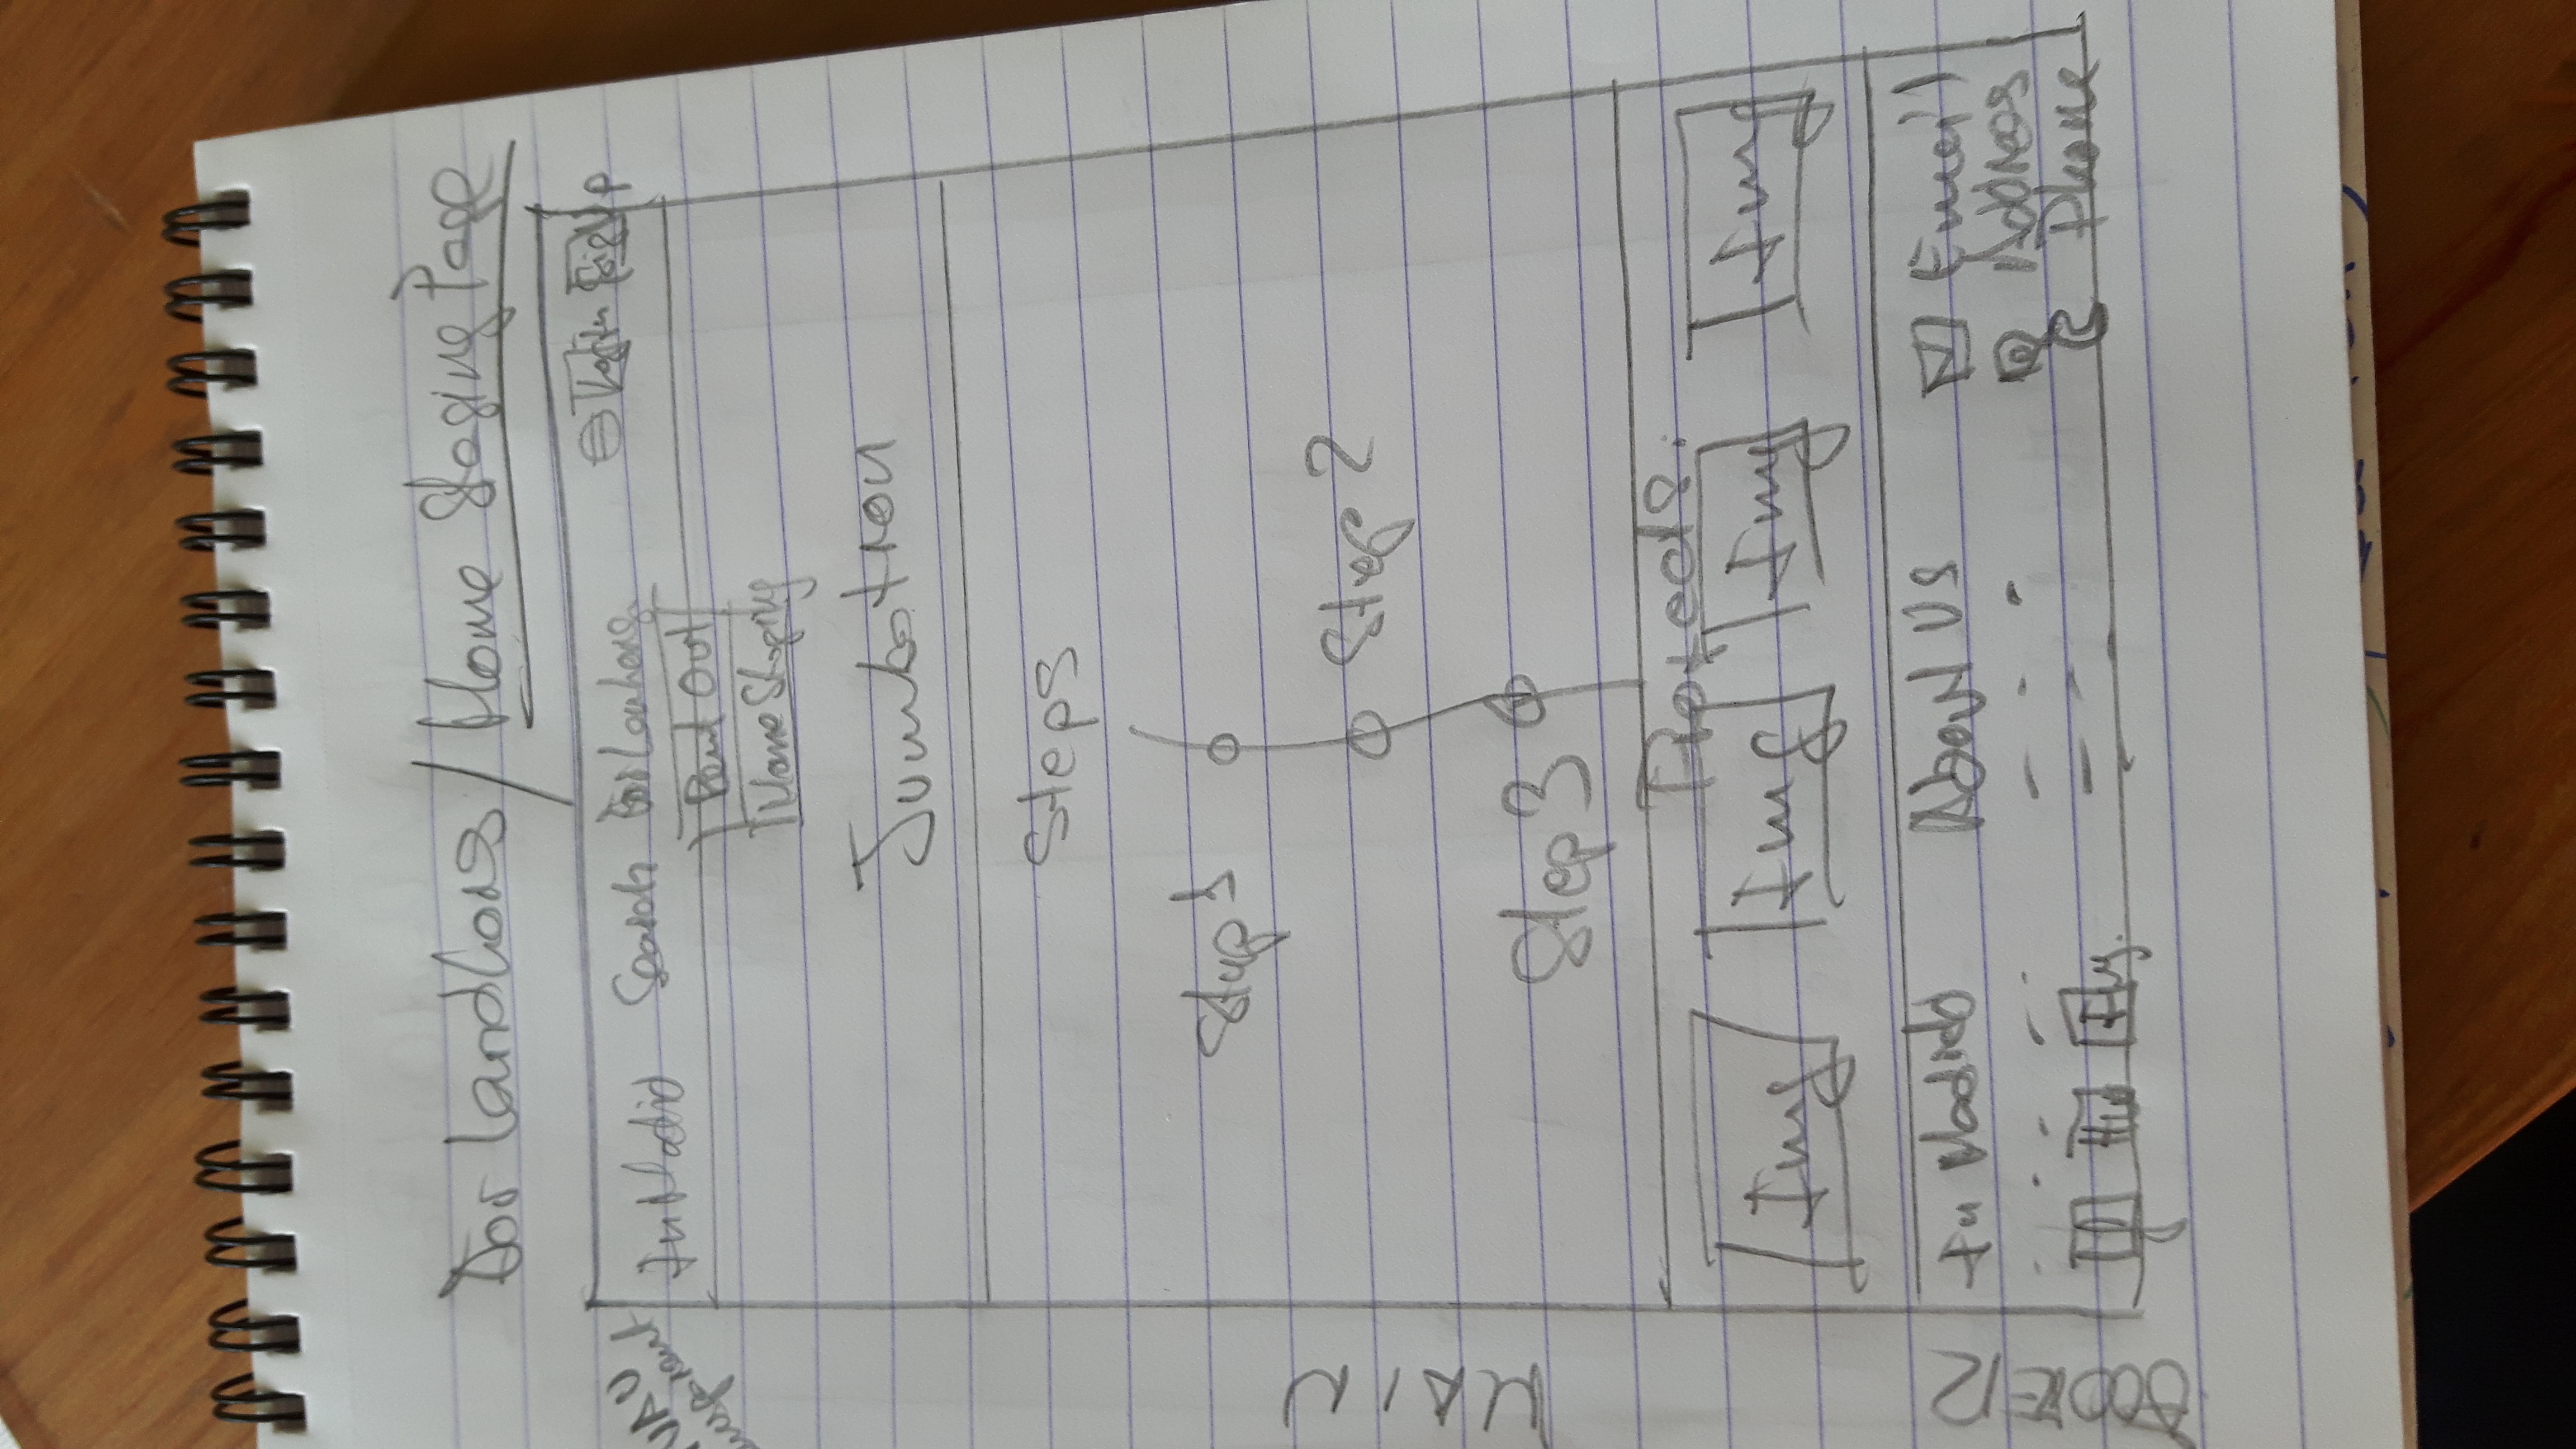 For Landlords / Home Staging Page
NAV
In Madrid Search For Landlords Login SignUp
Rent Out
Home Staging
Jumbotron
Steps
Step 1
Step 2
Step 3
MAIN
Projects:
Img Img Img Img
FOOTER
In Madrid About Us Email
Address
f Phone